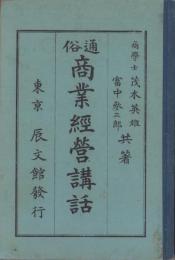 商學士 茂木英雄
富中📷三郎
共著
通俗
商業經營講話
東京 辰文館發行